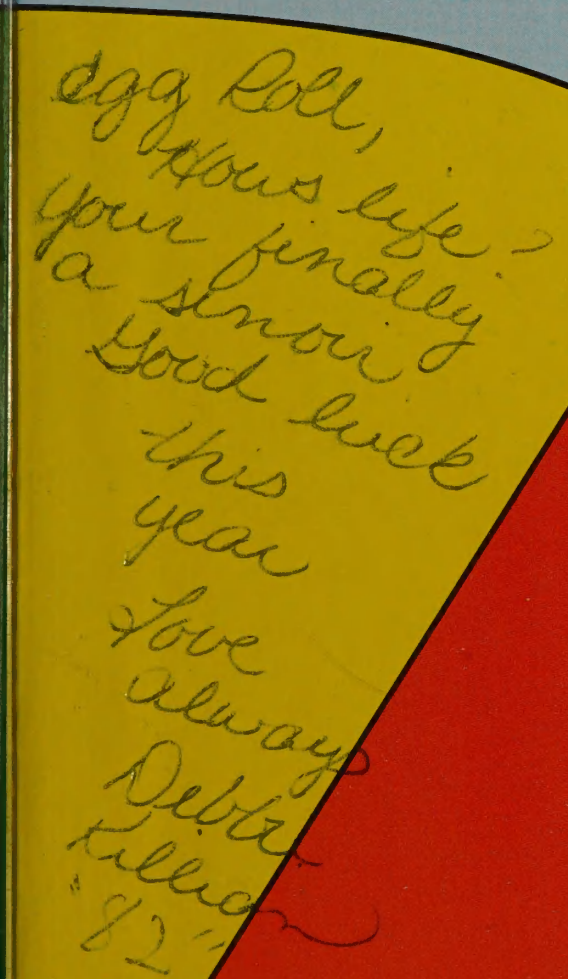 Egg Roll,
Hows life?
your finally
a sinoir
Good luck
this
year
Love
always
Debbi
Killion
"82"